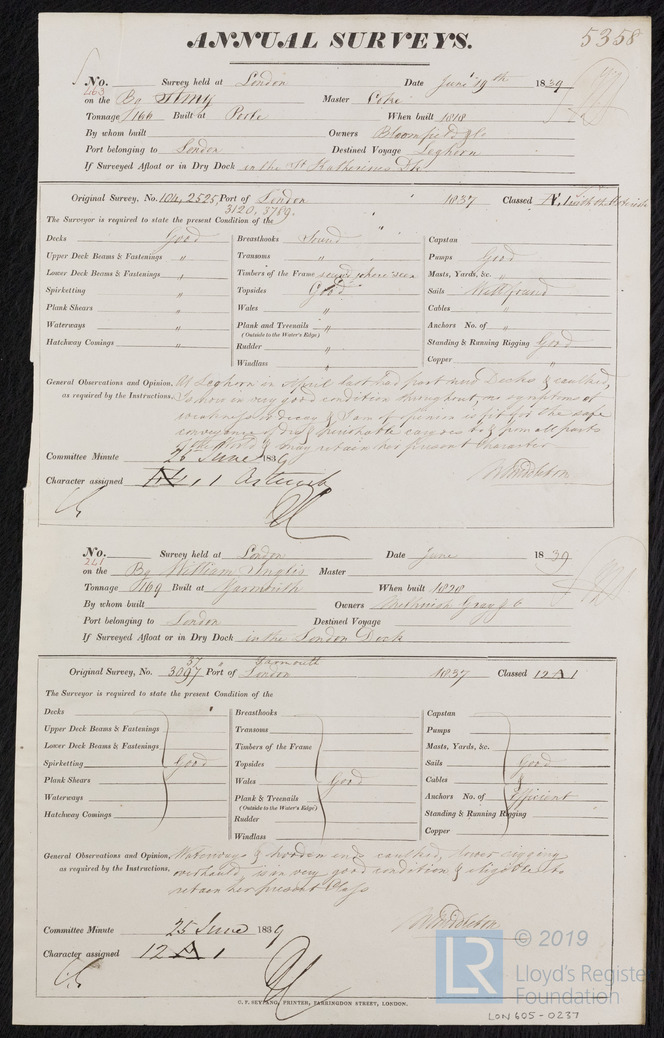 5358
ANNUAL SURVEYS.
No. Survey held at London Date June 19th 1839
463
on the Bg Amy Master Coke
Tonnage 166 Built at Poole When built 1818
By whom built Owners Bloomfield & Co
Port belonging to London Destined Voyage Leghorn
If Surveyed Afloat or in Dry Dock in the St Katherines Dk
Original Survey, No. 104, 2525, Port of London 1837 Classed
3120, 3789.
The Surveyor is required to state the present Condition of the
Decks Good Breasthooks Sound Capstan
Upper Deck Beams & Fastenings " Transoms " Pumps Good
Lower Deck Beams & Fastenings " Timbers of the Frame sound where seen Masts, Yards, &c. "
Spirketting " Topsides Good Sails Well found
Plank Shears " Wales " Cables "
Waterways " Plank and Treenails " Anchors No. of "
(Outside to the Water's Edge)
Hatchway Comings " Rudder " Standing & Running Rigging Good
Windlass " Copper "
General Observations and Opinion, At Leghorn in April last had part new Decks & caulked,
as required by the Instructions, Is now in very good condition throughout, no symptoms of
weakness or decay & I am of opinion is fit for the safe
conveyance of dry & perishable cargoes to & from all parts
of the World & may retain her present Character
Committee Minute 25 June 1839
Character assigned 1 Asterisk
W Middleton
No. Survey held at London Date June 1839
241
on the Bg William Inglis Master
Tonnage 169 Built at Yarmouth When built 1828
By whom built Owners Gray & Co
Port belonging to London Destined Voyage
If Surveyed Afloat or in Dry Dock in the London Dock
37 Yarmouth
Original Survey, No. 3097 Port of London 1837 Classed 12 A 1
The Surveyor is required to state the present Condition of the
Decks Breasthooks Capstan
Upper Deck Beams & Fastenings Transoms Pumps
Lower Deck Beams & Fastenings Timbers of the Frame Masts, Yards, &c.
Spirketting Good Topsides Sails Good
Plank Shears Wales Good Cables &
Waterways Plank & Treenails Anchors No. of Efficient
(Outside to the Water's Edge)
Hatchway Comings Rudder Standing & Running Rigging
Windlass Copper
General Observations and Opinion, Waterways & hooden ends caulked, lower rigging
as required by the Instructions, overhauld, is in very good condition & eligible to
retain her present Class
Committee Minute 25 June 1839
Character assigned 12 A 1
W Middleton
C. F. SEYFANG, PRINTER, FARRINGDON STREET, LONDON.
LR © 2019
Lloyd's Register
Foundation
LON605-0237